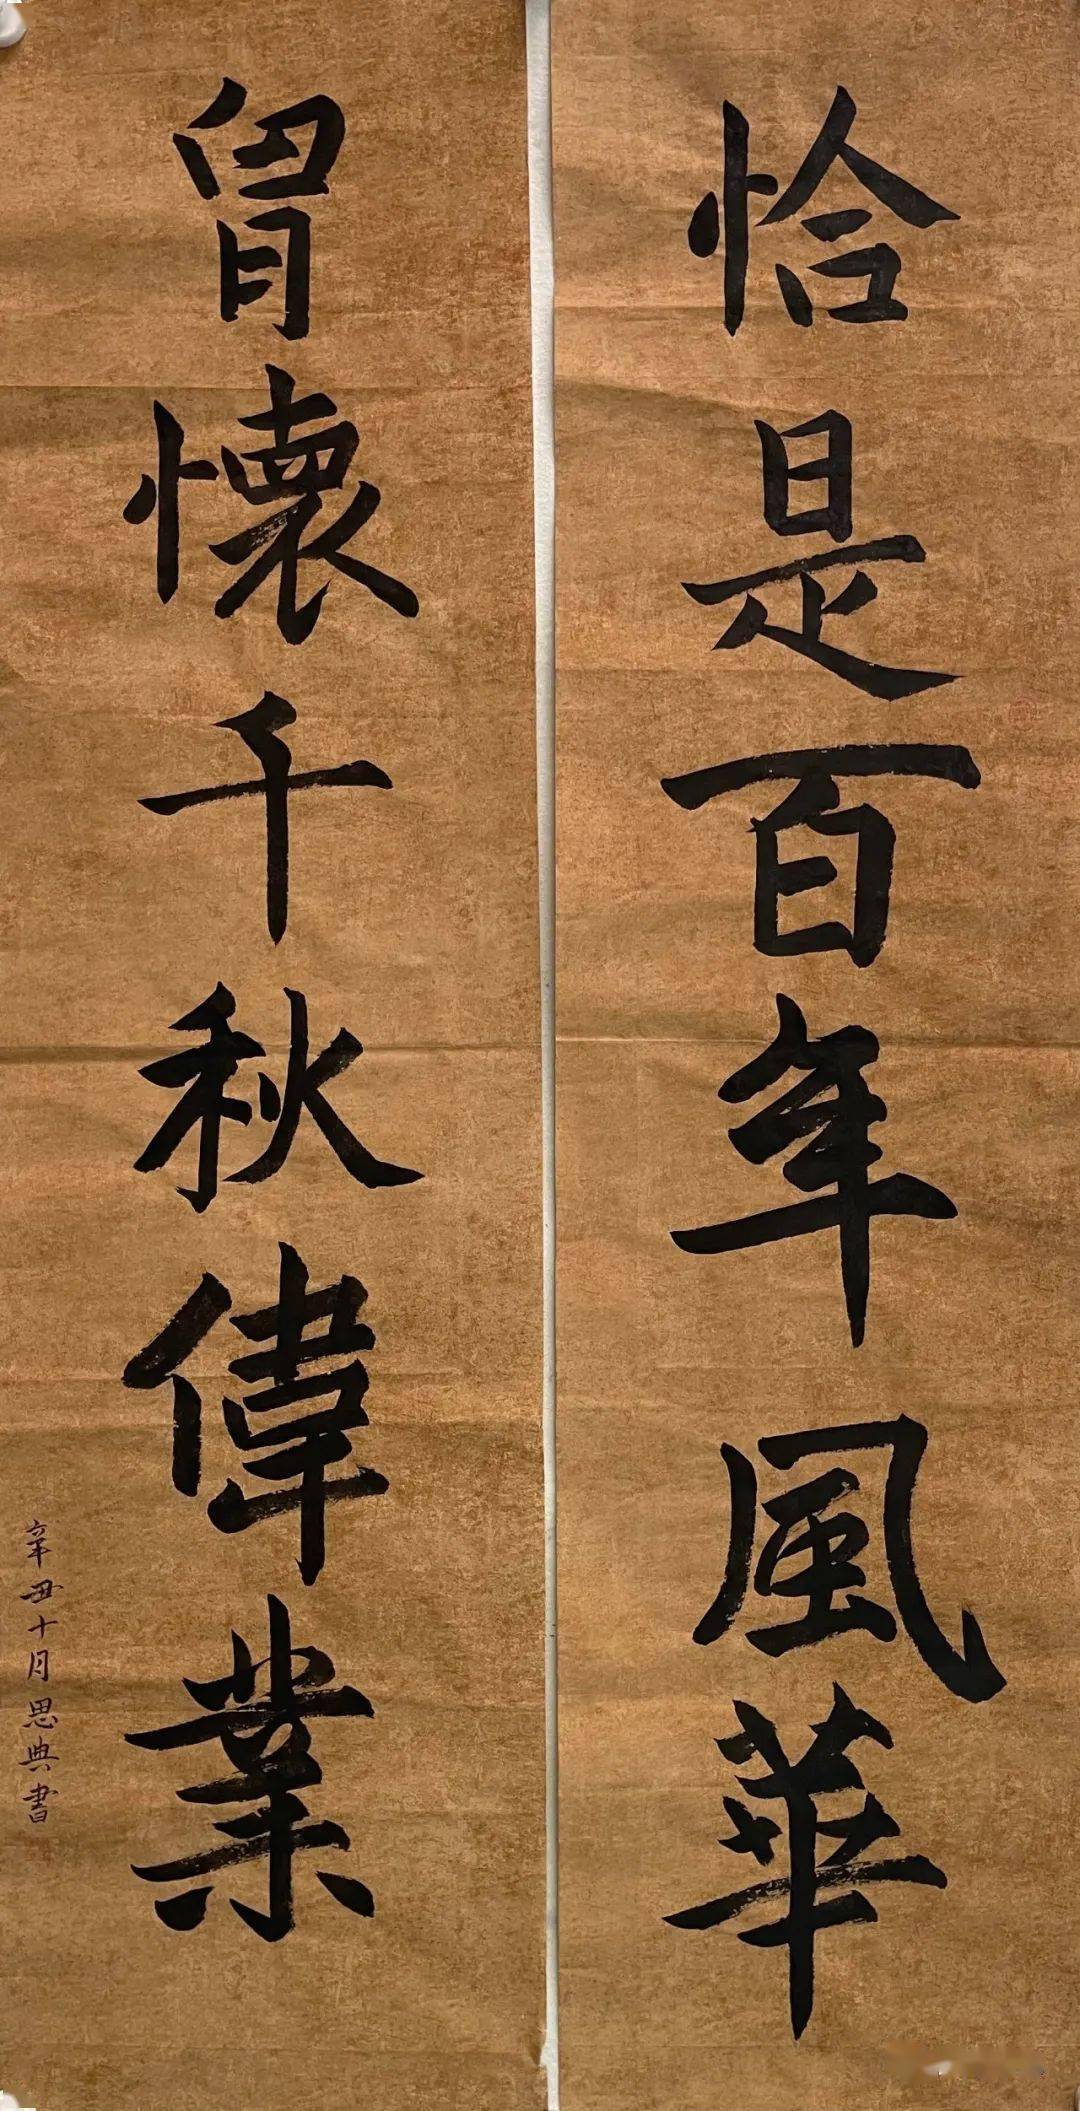 恰是百年風華
胷懷千秋偉業
辛丑十月思典書